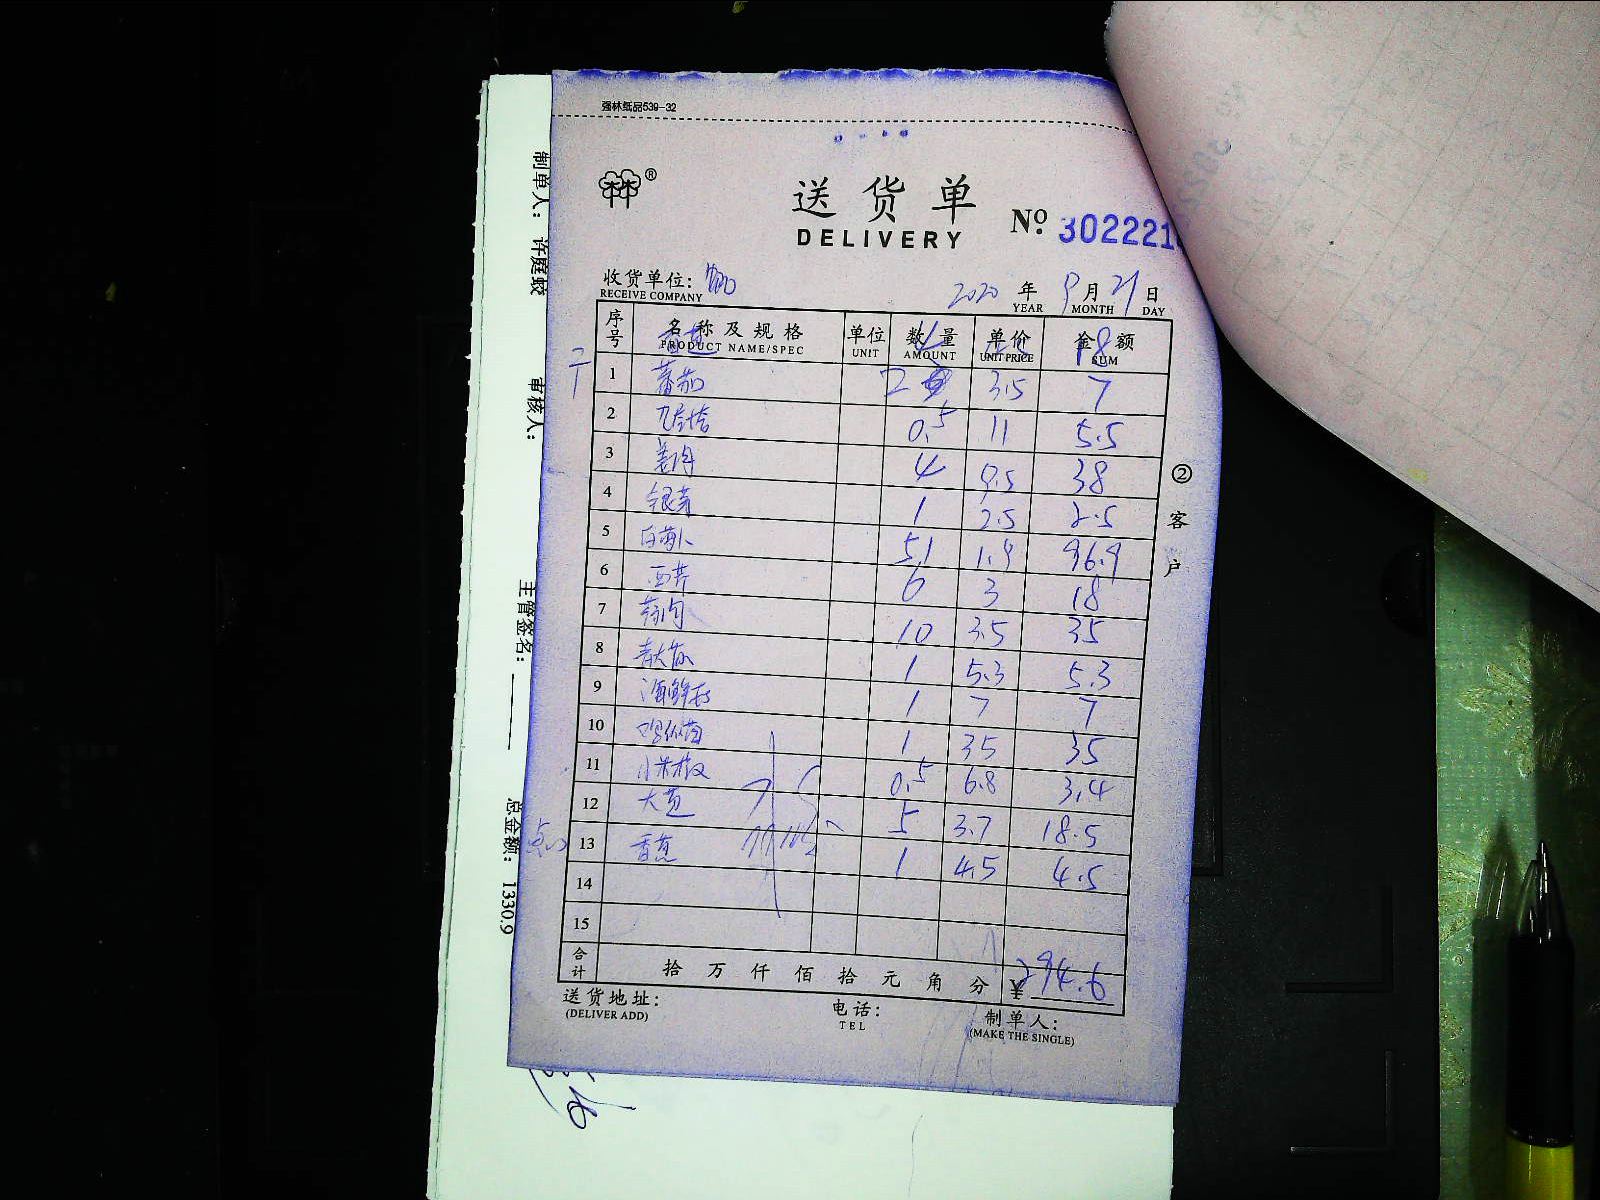 强林纸品539-32
®
送货单
DELIVERY
№ 302221
收货单位:
RECEIVE COMPANY
2020 年 9 月 21 日
YEAR MONTH DAY
序号 名称及规格 单位 数量 单价 金额
PRODUCT NAME/SPEC UNIT AMOUNT UNIT PRICE SUM
18
1 蕃茄 2 3.5 7
2 九层塔 0.5 11 5.5
3 姜肉 4 9.5 38
4 银芽 1 2.5 2.5
5 白萝卜 51 1.9 96.9
6 西芹 6 3 18
7 10 3.5 35
8 1 5.3 5.3
9 海鲜菇 1 7 7
10 1 35 35
11 小米椒 0.5 6.8 3.4
12 大葱 5 3.7 18.5
13 香蕉 1 4.5 4.5
14
15
合计 拾 万 仟 佰 拾 元 角 分 ¥ 294.6
送货地址:
(DELIVER ADD)
电话:
TEL
制单人:
(MAKE THE SINGLE)
②客户
制单人: 许庭蛟
审核人:
主管签名:
总金额: 1330.9